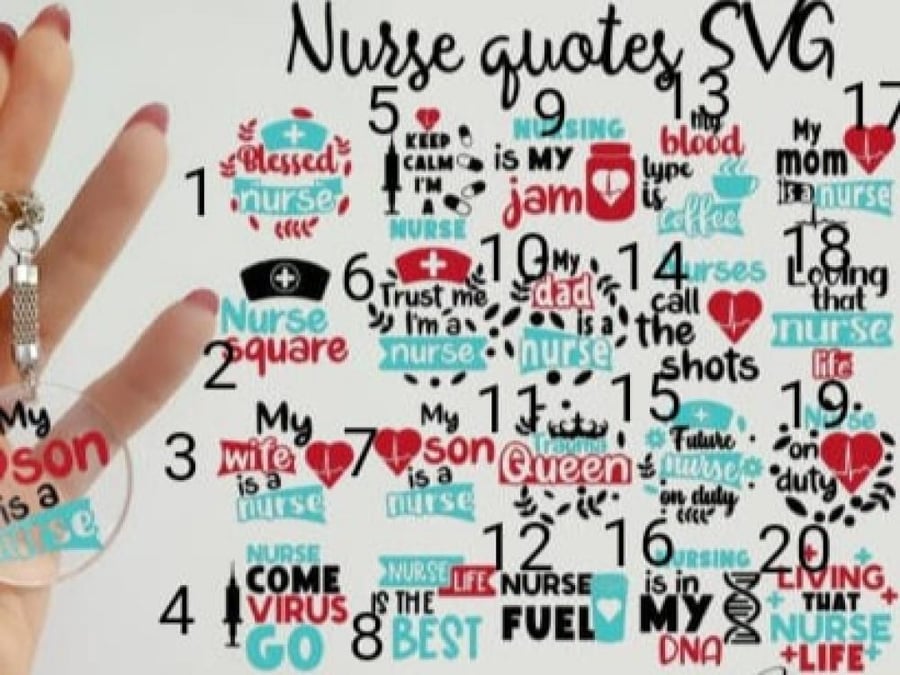 Nurse quotes SVG
1
Blessed
nurse
2
Nurse
square
3
My
wife
is a
nurse
4
NURSE
COME
VIRUS
GO
5
KEEP
CALM
I'M
A
NURSE
6
Trust me
I'm a
nurse
7
My
son
is a
nurse
8
NURSE LIFE
IS THE
BEST
9
NURSING
is MY
jam
10
My
dad
is a
nurse
11
Trauma
Queen
12
NURSE
FUEL
13
my
blood
type
is
coffee
14
nurses
call
the
shots
15
Future
nurse
on duty
16
NURSING
is in
MY
DNA
17
My
mom
is a nurse
18
Loving
that
nurse
life
19
Nurse
on
duty
20
LIVING
THAT
NURSE
LIFE
My
son
is a
nurse